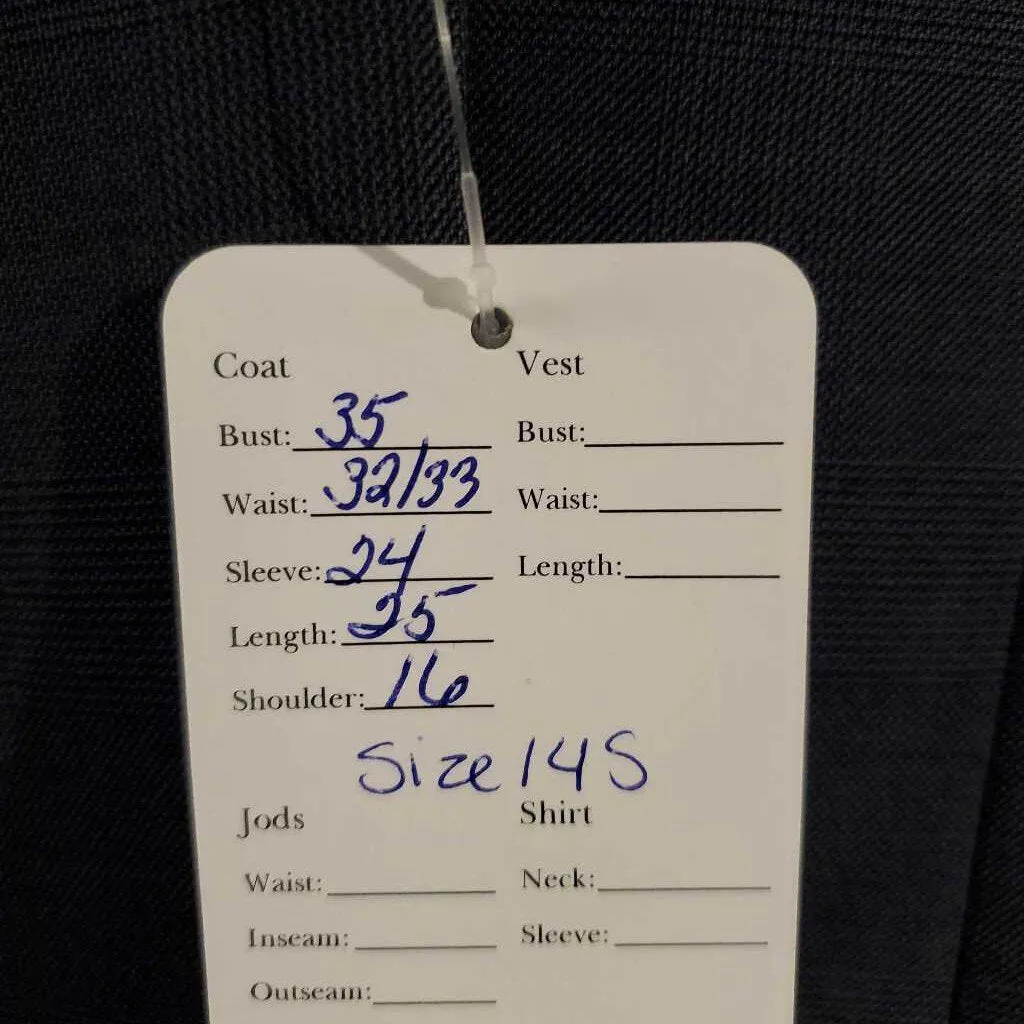 Coat
Bust: 35
Waist: 32/33
Sleeve: 24
Length: 25
Shoulder: 16
Vest
Bust:
Waist:
Length:
Size 14S
Jods
Waist:
Inseam:
Outseam:
Shirt
Neck:
Sleeve: